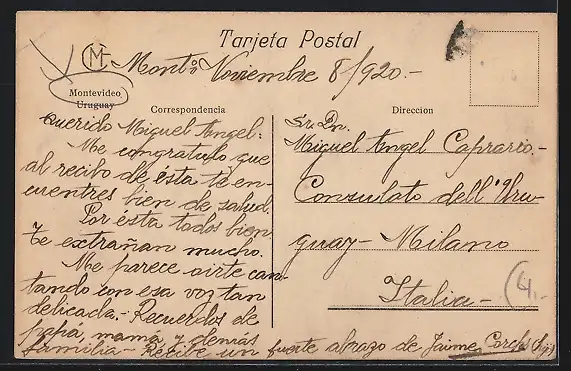 Tarjeta Postal
CM
Montº Noviembre 8/920.-
Montevideo
Uruguay
Correspondencia
Direccion
Querido Miguel Angel:
Me congratulo que
al recibo de esta te en-
cuentres bien de salud.
Por esta todos bien
Te extrañan mucho.
Me parece oirte can-
tando con esa voz tan
delicada.- Recuerdos de
papá, mamá y demás
familia.- Recibe un fuerte abrazo de Jaime
Sr. Dn.
Miguel Angel Caprario-
Consulato dell' Uru-
guay- Milano
Italia-
4,-